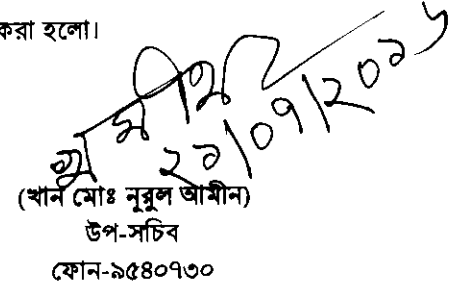 করা হলো।
২১/০৭/২০১৬
(খান মোঃ নুরুল আমীন)
উপ-সচিব
ফোন-৯৫৪০৭৩০